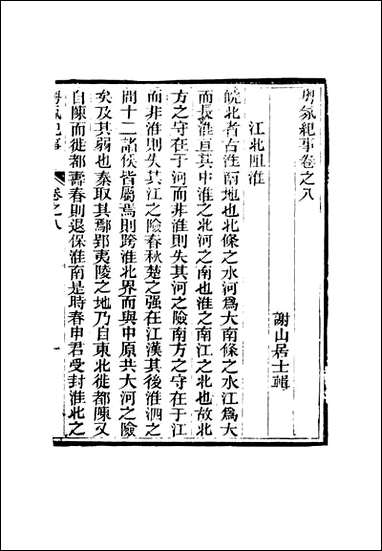 粵氛紀事卷之八
謝山居士輯
江北阻淮
皖北者古淮南地也北條之水河爲大南條之水江爲大
而長淮亘其中淮之北河之南也淮之南江之北也故北
方之守在于河而非淮則失其河之險南方之守在于江
而非淮則失其江之險春秋楚之强在江漢其後淮泗之
間十二諸侯皆屬焉則跨淮北界而與中原共大河之險
矣及其弱也秦取其鄢郢夷陵之地乃自東北徙都陳又
自陳而徙都壽春則退保淮南是時春申君受封淮北之
粵氛紀事
卷之八
一